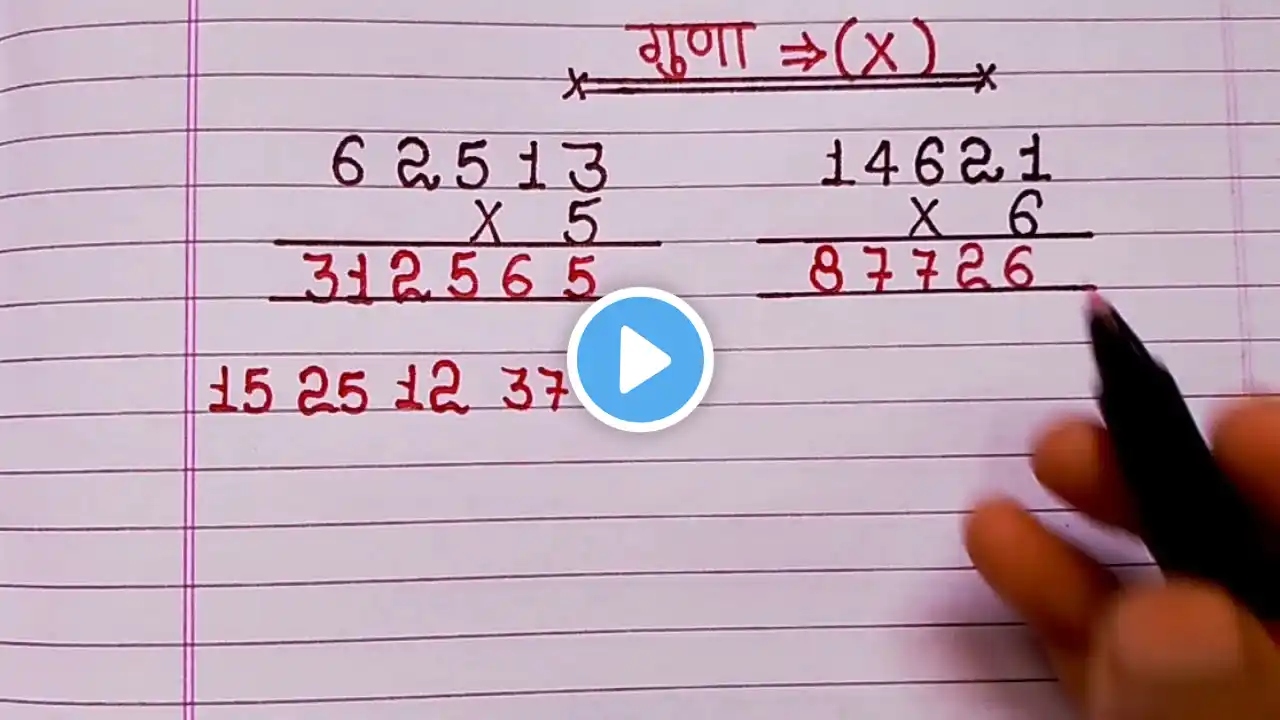 गुणा ⇒ (X)
62513 14621
X 5 X 6
312565 87726
15 25 12 37